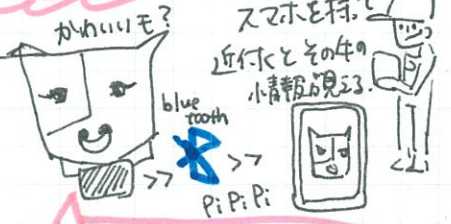 かわいいモ?
スマホを持って
近付くとその牛の
情報が見える.
blue
tooth
>>
>>
Pi Pi Pi